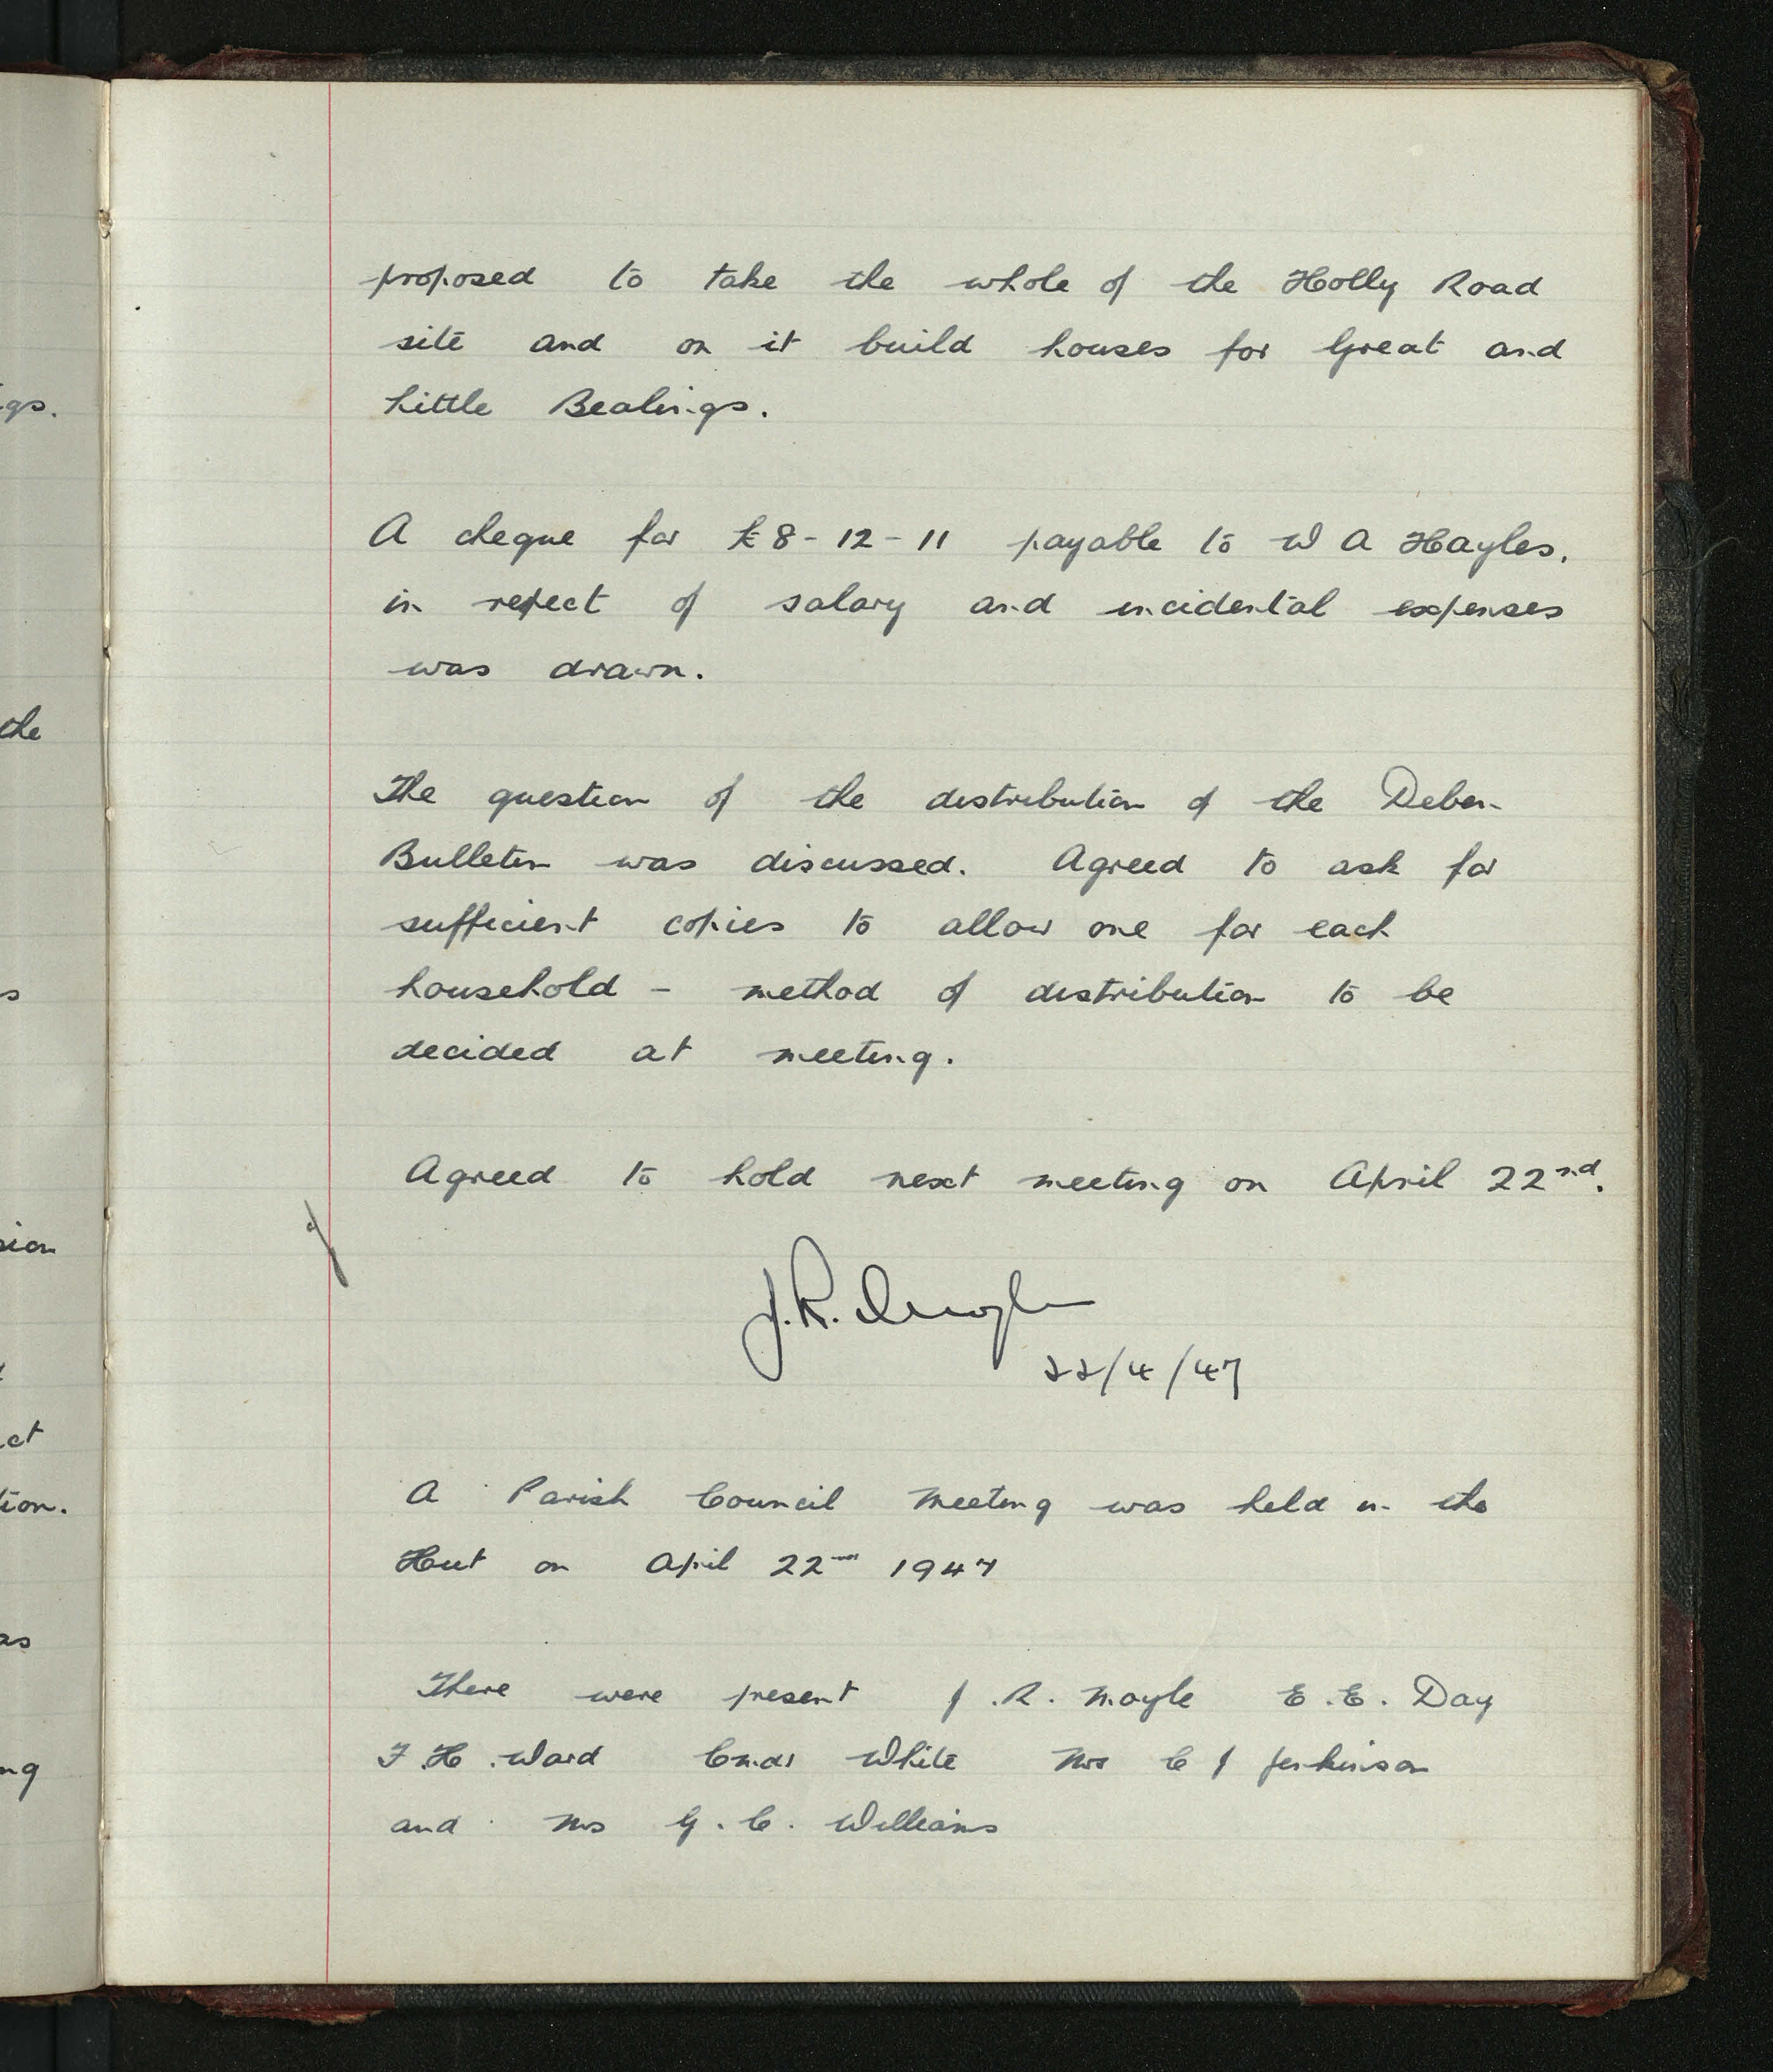 proposed to take the whole of the Holly Road
site and on it build houses for Great and
Little Bealings.
A cheque for £8-12-11 payable to W A Hayles,
in respect of salary and incidental expenses
was drawn.
The question of the distribution of the Deben
Bulletin was discussed. Agreed to ask for
sufficient copies to allow one for each
household - method of distribution to be
decided at meeting.
Agreed to hold next meeting on April 22nd.
J.R. Moyle
22/4/47
A Parish Council Meeting was held in the
Hut on April 22nd 1947
There were present J.R. Moyle E.E. Day
F.H. Ward Cmdr White Mrs C J Jenkinson
and Mrs G.C. Williams
gs.
the
s
sion
ct
tion.
as
ng